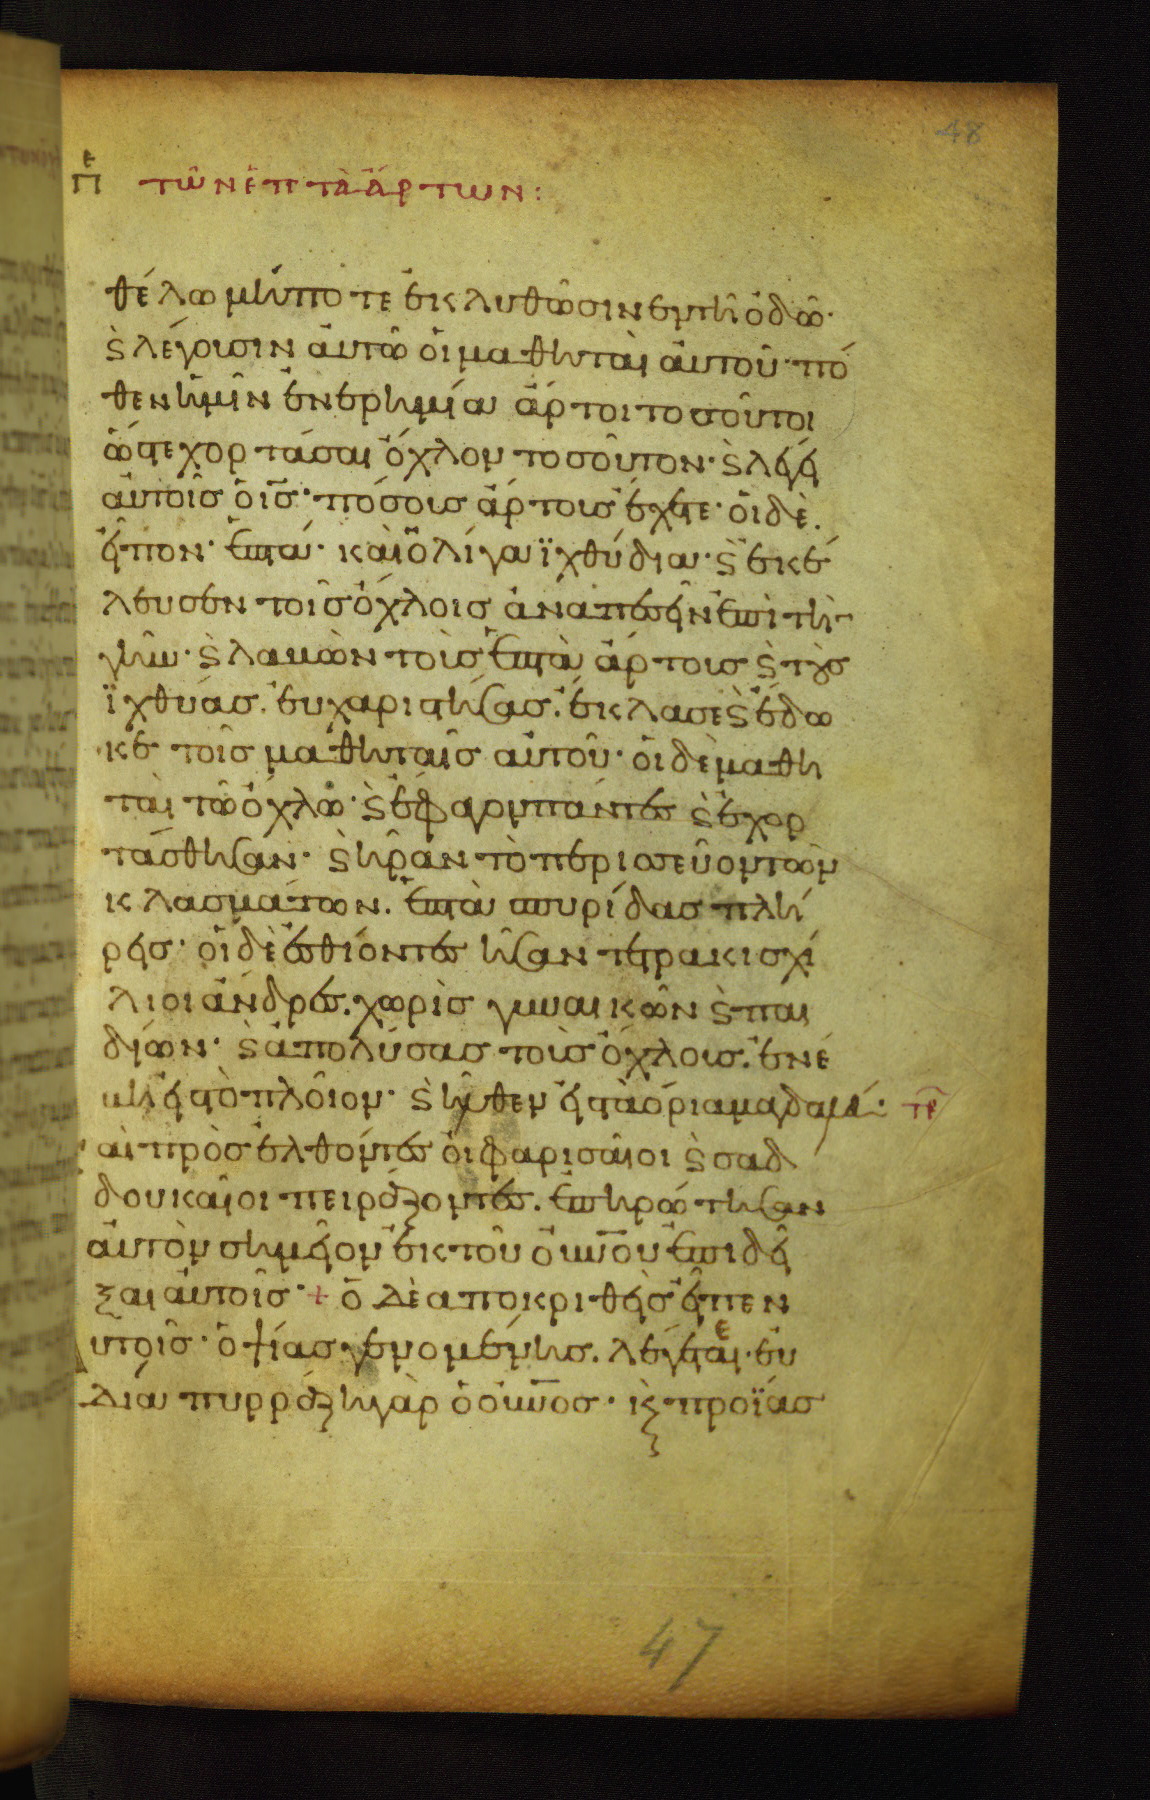 48
πε τῶν ἑπτὰ ἄρτων:
θέλω μήποτε ἐκλυθῶσιν ἐν τῆ ὁδῶ·
ϛ λέγουσιν αὐτῶ οἱ μαθηταὶ αὐτοῦ· πό
θεν ἡμῖν ἐν ἐρημία ἄρτοι τοσοῦτοι
ὥστε χορτάσαι ὄχλον τοσοῦτον· ϛ λέγει
αὐτοῖς ὁ ις̅· πόσους ἄρτους ἔχετε· οἱ δὲ.
εἶπον· ἑπτά· καὶ ὀλίγα ἰχθύδια· ϛ ἐκέ
λευσεν τοῖς ὄχλοις ἀναπεσεῖν ἐπὶ τὴν
γῆν· ϛ λαβὼν τοὺς ἑπτὰ ἄρτους ϛ τοὺς
ϊχθύας. εὐχαριστήσας. ἔκλασε ϛ ἔδω
κε τοῖς μαθηταῖς αὐτοῦ· οἱ δὲ μαθη
ταὶ τῶ ὄχλω· ϛ ἔφαγον πάντες ϛ ἐχορ
τάσθησαν· ϛ ἦραν τὸ περισσεῦον τῶν
κλασμάτων. ἑπτὰ σπυρίδας πλή
ρεις· οἱ δὲ ἐσθίοντες ἦσαν τετρακισχί
λιοι ἄνδρες. χωρὶς γυναικῶν ϛ παι
δίων· ϛ ἀπολύσας τοὺς ὄχλους. ἐνέ
βη εἰς τὸ πλοῖον· ϛ ἦλθεν εἰς τὰ ὅρια μαγδαλά: τε
αὶ προσελθόντες οἱ φαρισαῖοι ϛ σαδ
δουκαῖοι πειράζοντες. ἐπηρώτησαν
αὐτὸν σημεῖον ἐκ τοῦ οὐνου ἐπιδεῖ
ξαι αὐτοῖς· + ὁ δὲ ἀποκριθεὶς εἶπεν
υτοῖς· ὀψίας γενομένης. λέγεται· εὐ
δία πυρράζει γὰρ ὁ οὐνος· κ προϊας
47